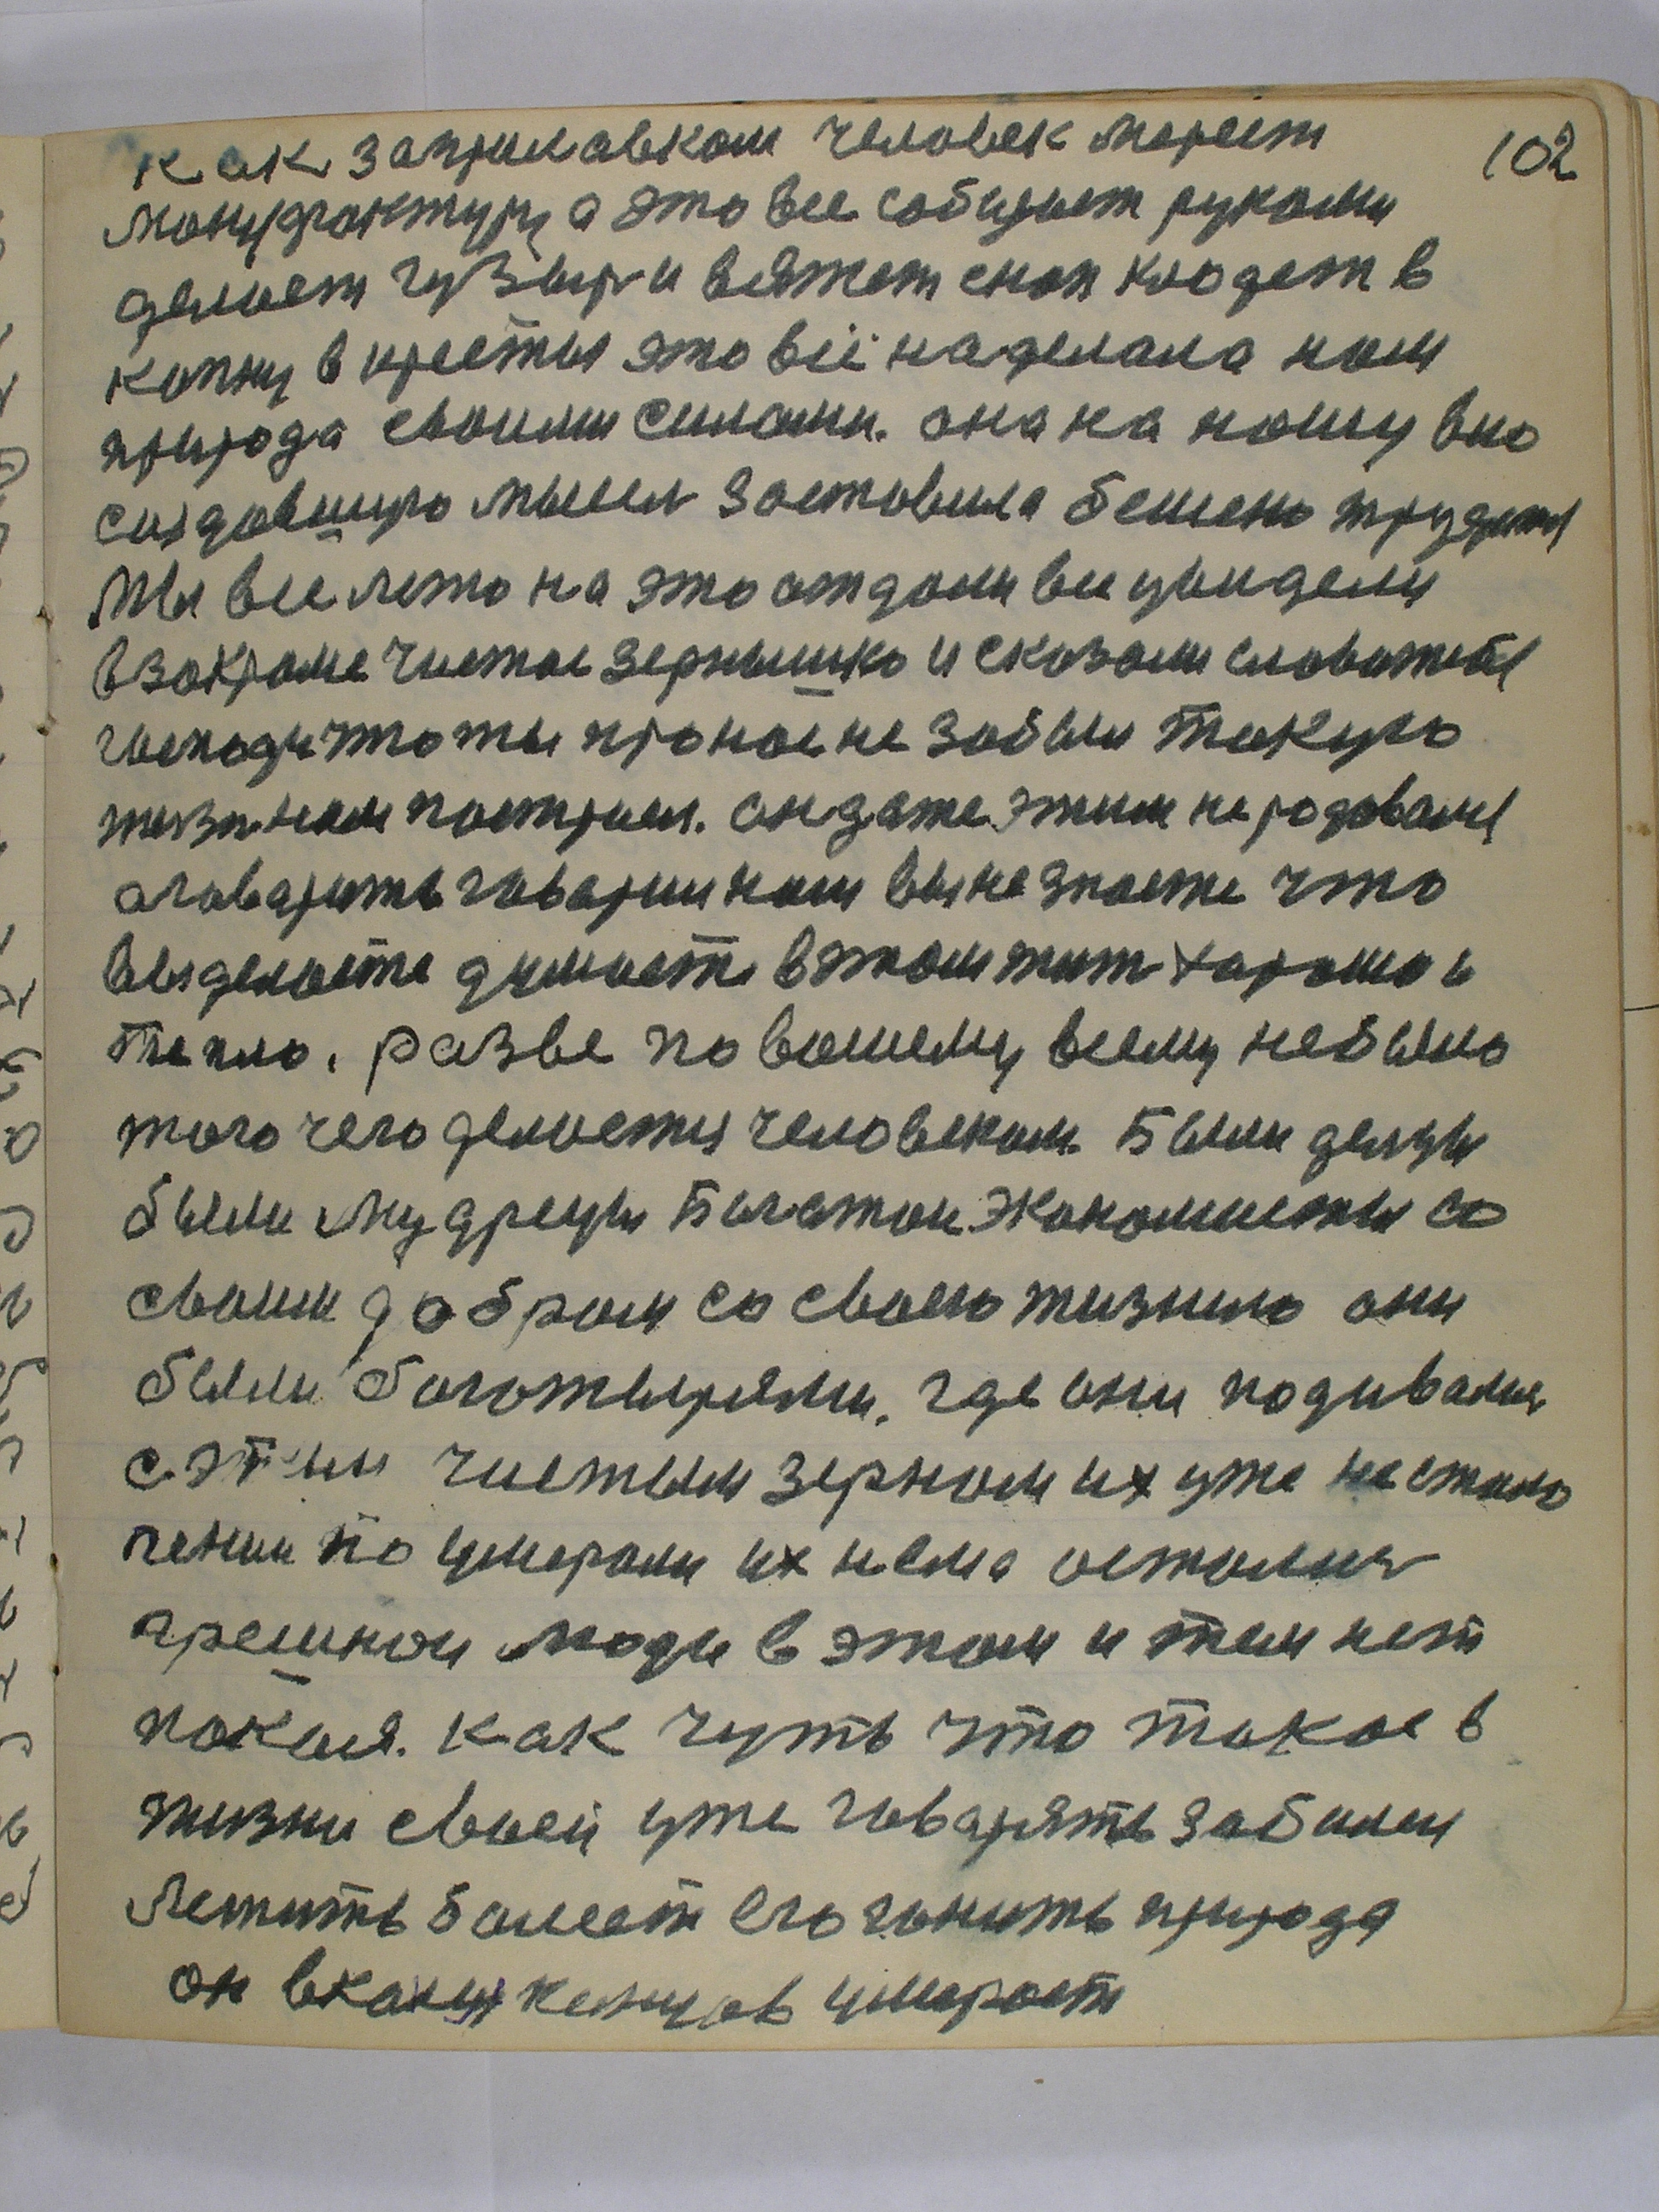 как заприлавком человек мереет 102
мануфактуру а это все собирает руками
делает гузырь и вяжет сноп кладет в
копну в кресты это всё наделала нам
природа своими силами. она на нашу вно
создавшую мысль заставила бешено трудится
Мы все лето на это отдали все увидели
взакроме чистое зернышко и сказали слава тебе
господи что ты пронас не забыл такую
жизнь нам построил. он даже этим не радовался
а говарить говарил нам вы не знаете что
вы делаете думаете в этом жить харашо и
тепло. разве по вашему всему небыло
того чего делается человеком. Были дельцы
были мудрецы Багатои Экономисты со
своим добром со своею жизнию они
были богатырями. где они подивались
с этим чистым зерном их уже не стало
почину по умерали их нема остались
грешнои люди в этом и тем нет
покоя. как чуть что такое в
жизни своей уже говарять заболел
Лежить болеет его гонить природа
он вконци концов умерает